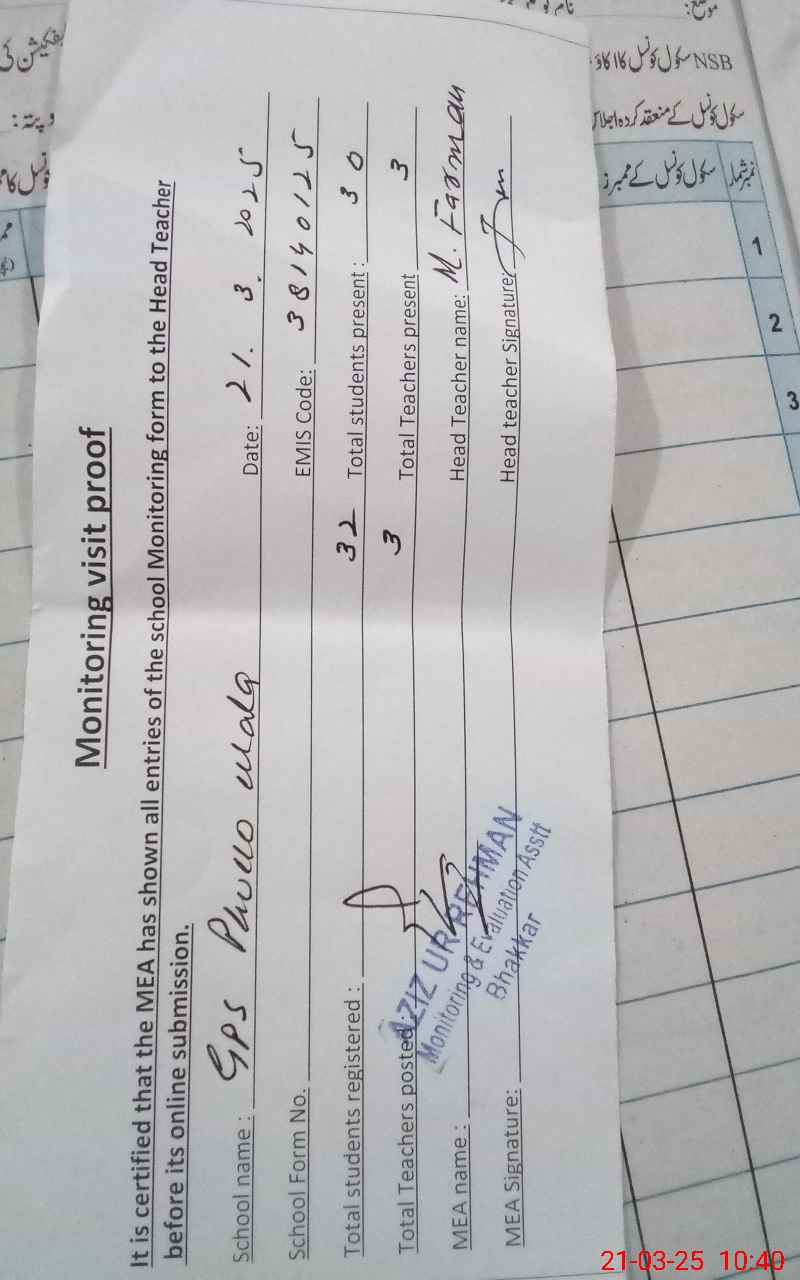 Monitoring visit proof
It is certified that the MEA has shown all entries of the school Monitoring form to the Head Teacher
before its online submission.
School name : GPS Phullo wala Date: 21. 3. 2025
School Form No. EMIS Code: 38140125
Total students registered : 32 Total students present : 30
Total Teachers posted : 3 Total Teachers present 3
MEA name : Head Teacher name: M. Farman
MEA Signature: Head teacher Signature:
AZIZ UR REHMAN
Monitoring & Evaluation Asstt
Bhakkar
موضع:
NSB سکول کونسل کا اکاؤ
سکول کونسل کے منعقد کردہ اجلاس
نمبر شمار سکول کونسل کے ممبرز
1
2
3
21-03-25 10:40